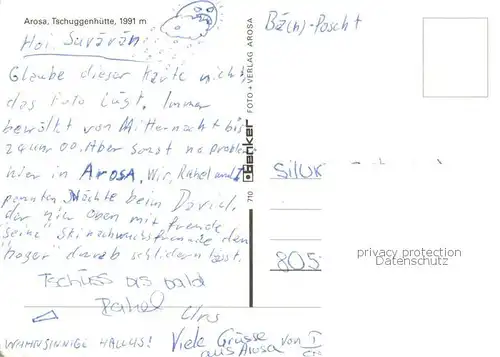 Arosa, Tschuggenhütte, 1991 m
Hoi
Glaube dieser Karte nicht
das Foto lügt. Immer
bewölkt von Mitternacht bis
24 Uhr 00. Aber sonst no problem
hier in AROSA. Wir, Rahel und
pennten beim David,
der mich oben mit freude
"seine" Skinachwuchsfreunde den
"hoger" darab schlidern lässt.
Tschüss bis bald
Rahel
Urs
WAHNSINNIGE
Viele Grüsse von
aus Arosa
710 Benker FOTO + VERLAG AROSA
805
privacy protection
Datenschutz